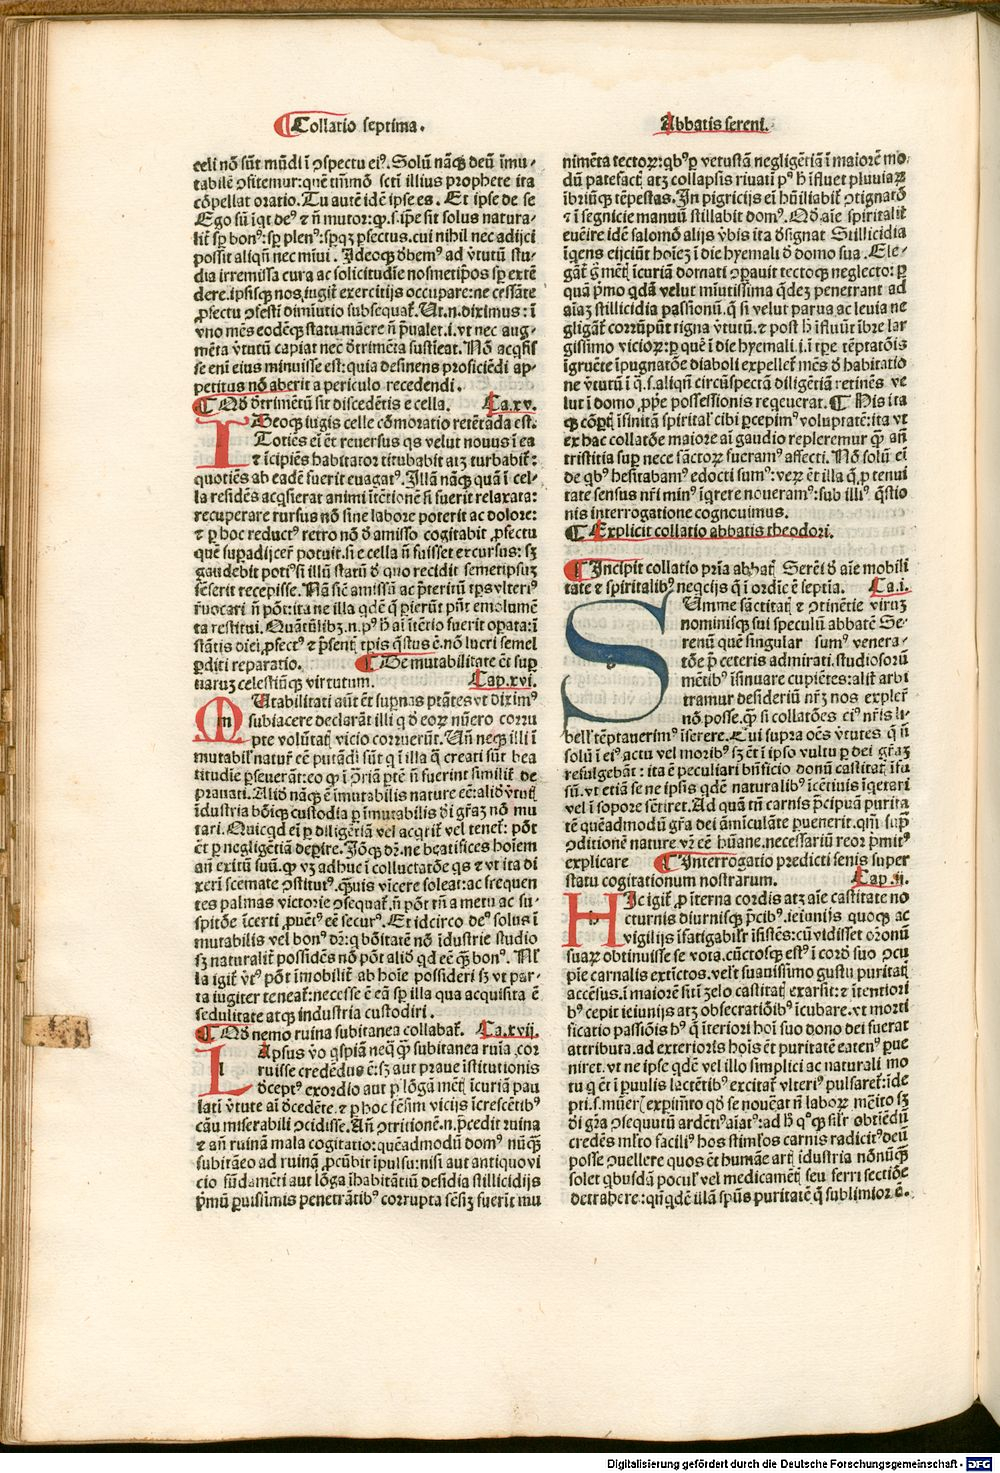 Collatio septima.
Abbatis sereni.
celi nō sūt mūdi ī ɔspectu ei⁹. Solū nāqꝫ deū īmu-
tabilē ɔfitemur: quē tm̄mō sctī illius prophete ita
cōpellat oratio. Tu autē idē ipse es. Et ipse de se
Ego sū īqt de⁹ ⁊ n̄ mutor: qꝛ .s. ip̄e sit solus natura-
lit̄ sp̄ bon⁹: sp̄ plen⁹: sp̄qꝫ ꝑfectus. cui nihil nec adijci
possit aliqn̄ nec mīui. Ideoqꝫ ď̄bem⁹ ad v̄tutū stu-
dia irremissa cura ac solicitudīe nosmetip̄os sp̄ extē
dere. ipsisqꝫ nos iugit̄ exercitijs occupare: ne cessāte
ꝓfectu ɔfesti dimīutio subsequat̄. Ut .n. diximus: ī
vno mēs eodēqꝫ statu māere n̄ p̄ualet .i. vt nec aug-
mēta v̄tutū capiat nec ď̄trimēta sustīeat. Nō acq̄sis
se enī eius minuisse est: quia desinens proficiēdi ap-
petitus nō aberit a periculo recedendi.
¶ Qď̄ ď̄trimētū sit discedētis e cella. Ca.xv.
IDeoqꝫ iugis celle cōmoratio retētāda est.
Totiēs eī ēt reuersus q̄s velut nouus ī ea
⁊ īcipiēs habitator titubabit atꝫ turbabit̄:
quotiēs ab eadē fuerit euagat⁹. Illā nāqꝫ quā ī cel-
la residēs acq̄sierat animi ītētionē si fuerit relaxata:
recuperare rursus nō sine labore poterit ac dolore:
⁊ ꝑ hoc reduct⁹ retro nō ď̄ amisso cogitabit ꝓfectu
quē sup̄adijcer̄ potuit. si e cella n̄ fuisset excursus: sꝫ
gaudebit poti⁹ si illū statū ď̄ quo recidit semetipsuꝫ
sēserit recepisse. Nā sic̄ amissū ac p̄teritū tp̄s vlteri⁹
r̄uocari n̄ pōt: ita ne illa qdē q̄ ꝑierūt pn̄t emolumē
ta restitui. Quātūlibꝫ .n. p⁹ h̄ aī ītētio fuerit oꝑata: ī
stātis diei ꝓfect⁹ ⁊ p̄sent̄ tp̄is q̄stus ē. nō lucri semel
ꝑditi reparatio. ¶ De mutabilitate ēt sup̄
naruꝫ celestiūqꝫ virtutum. Cap.xvi.
MUtabilitati aūt ēt sup̄nas p̄tātes vt dixim⁹
subiacere declarāt illi q ď̄ eoꝝ nūero corru
pte volūtat̄ vicio corruerūt. Un̄ neqꝫ illi ī
mutabil̄ natur̄ eē putādi sūt q ī illa q̄ creati sūt bea
titudīe ꝑseuerāt: eo qꝛ ī ɔ̄riam pt̄ē n̄ fuerint similit̄ de
prauati. Aliď̄ nāqꝫ ē īmutabilis nature eē: aliď̄ v̄tut̄
īdustria bōiqꝫ custodia ꝑ īmutabilis ďi gr̄aꝫ nō mu
tari. Quicqd eī ꝑ diligētiā vel acqrit̄ vel tenet̄: pōt
ēt ꝑ negligētiā deꝑire. Iō̄qꝫ dꝛ. ne beatifices hoīem
an̄ exitū suū. qꝛ vꝫ adhuc ī colluctatōe qs ⁊ vt ita di
xerī scemate ɔstitut⁹. q̄uis vīcere soleat: ac frequen
tes palmas victorie ɔsequat̄. n̄ pōt tn̄ a metu ac su-
spitōe īcerti ꝓuēt⁹ eē secur⁹. Et idcirco de⁹ solus ī
mutabilis vel bon⁹ dꝛ: q bōitatē nō īdustrie studio
sꝫ naturalit̄ possidēs nō pōt aliď̄ qd eē q̄ bon⁹. Nl̄
la igit̄ v̄t⁹ pōt īmobilit̄ ab hoīe possideri sꝫ vt par-
ta iugiter teneat̄: necesse ē eā sp̄ illa qua acquisita ē
sedulitate atqꝫ industria custodiri.
¶ Qď̄ nemo ruina subitanea collabat̄. Ca.xvij.
LApsus v̄o qspiā neq̄q̄ subitanea ruīa cor
ruisse credēdus ē: sꝫ aut praue īstitutionis
ď̄cept⁹ exordio aut ꝑ lōgā mēt̄ īcuriā pau
lati v̄tute aī ď̄cedēte. ⁊ ꝑ hoc sēsim vicijs īcrescētib⁹
cāu miserabili ɔcidisse. An̄ ɔtritionē .n. p̄cedit ruina
⁊ an̄ ruinā mala cogitatio: quēadmodū dom⁹ nūq̄
subitāeo ad ruinā ꝓcūbit īpulsu: nisi aut antiquo vi
cio fūdamēti aut lōga īhabitātiū desidia stillicidijs
p̄mū ꝑuissimis penetrātib⁹ corrupta sēsiꝫ fuerīt mu
nimēta tectoꝝ: qb⁹ ꝑ vetustā negligētiā ī maiorē mo-
dū patefact̄ atꝫ collapsis riuatī p⁹ h̄ īfluet pluuiaꝝ
ībriūqꝫ tēpestas. In pigricijs eī hūiliabit̄ ɔtignatō
⁊ ī segnicie manuū stillabit dom⁹. Qď̄ aīe spiritalit̄
euēire idē salomō alijs v̄bis ita ď̄signat Stillicidia
īqens eijciūt hoīeꝫ ī die hyemali ď̄ domo sua. Ele-
gāt̄ g̊ mēt̄ īcuriam domati ɔꝑauit tectoqꝫ neglecto: ꝑ
quā p̄mo qdā velut mīutissima qdeꝫ penetrant ad
aīaꝫ stillicidia passionū. q̄ si velut parua ac leuia ne
gligāt̄ corrūpūt tigna v̄tutū. ⁊ post h̄ īfluūt ībre lar
gissimo vicioꝝ: ꝑ quē ī die hyemali .i. ī tp̄e tēptatōis
īgruēte īpugnatōe diaboli expellet̄ mēs ď̄ habitatio
ne v̄tutū ī q̄ .s. aliqn̄ circūspectā diligētiā retinēs ve
lut ī domo ꝓp̄e possessionis reqeuerat. ¶ His ita
qꝫ cōꝑt̄ īfinitā spirital̄ cibi ꝑcepim⁹ voluptatē: ita vt
ex hac collatōe maiore aī gaudio repleremur q̄ an̄
tristitia sup̄ nece sāctoꝝ fueramꝰ affecti. Nō solū eī
de qb⁹ hesitabam⁹ edocti sum⁹: veꝝ ēt illa q̄ ꝓ tenui
tate sensus nr̄i min⁹ īqrere noueram⁹: sub illi⁹ q̄stio
nis interrogatione cognouimus.
¶ Explicit collatio abbatis theodori.
¶ Incipit collatio prīa abbat̄ Serēi ď̄ aīe mobili
tate ⁊ spiritalib⁹ neqcijs q̄ ī ordīe ē septīa. Ca.i.
SUmme sāctitat̄ ⁊ ɔtinētie viruꝫ
nominisqꝫ sui speculū abbatē Se-
renū quē singular̄ sum⁹ venera-
tōe p̄ ceteris admirati. studiosorū
mētib⁹ īsinuare cupiētes: alit̄ arbi
tramur desideriū nr̄ꝫ nos expler̄
nō posse. q̄ si collatōes ei⁹ nr̄is li-
bell̄ tēptauerim⁹ īserere. Cui supra oēs v̄tutes q̄ n̄
solū ī ei⁹ actu vel morib⁹ sꝫ ēt ī ipso vultu ꝑ dei gr̄aꝫ
refulgebāt: ita ē peculiari bn̄ficio donū castitat̄ īfu
sū. vt etiā se ne ipsis qdē naturalib⁹ īcētiuis īqetari
vel ī sopore sētiret. Ad quā tn̄ carnis p̄cipuā purita
tē quēadmodū gr̄a dei amīculāte ꝑuenerit. qm̄ sup̄
ɔditionē nature vꝛ eē hūane. necessariū reor p̄mit⁹
explicare ¶ Interrogatio predicti senis super
statu cogitationum nostrarum. Cap.ij.
HIc igit̄ ꝓ īterna cordis atꝫ aīe castitate no
cturnis diurnisqꝫ p̄cib⁹. ieiunijs quoqꝫ ac
vigilijs īfatigabil̄r īsistēs: cū vidisset or̄onū
suaꝝ obtinuisse se vota. cūctosqꝫ est⁹ ī cord̄ suo ɔcu
pīe carnalis extīctos. vel̄t suauissimo gustu puritat̄
accēsus. ī maiorē sitī zelo castitat̄ exarsit: ⁊ ītentiori
b⁹ cepit ieiunijs atꝫ obsecratiōib⁹ īcubare. vt morti
ficatio passiōis h⁹ q̄ īteriori hoī suo dono dei fuerat
attributa. ad exteriorīs hoīs ēt puritatē eaten⁹ ꝑue
niret. vt ne ipse qdē vel illo simplici ac naturali mo
tu q̄ ēt ī paulis lactētib⁹ excitat̄ vlteri⁹ pulsaret̄: ide
pti .s. mūer̄ exꝑimēto qď̄ se nouēat n̄ laborꝫ mēito sꝫ
ďi gr̄a ɔsequutū ardēti⁹ aīat⁹: ad h̄ q⁰qꝫ sil̄r obtiēdū
credēs ml̄to facili⁹ hos stimlos carnis radicit⁹ deū
posse ɔuellere quos ēt humāe art̄ īdustria nōnūq̄
solet qbusdā pocul̄ vel medicamēt̄ seu ferri sectiōe
detrahere: qn̄qdē illā spūs puritatē q̄ sublimior ē.
Digitalisierung gefördert durch die Deutsche Forschungsgemeinschaft - DFG